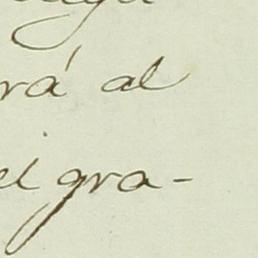 rá al
el gra-